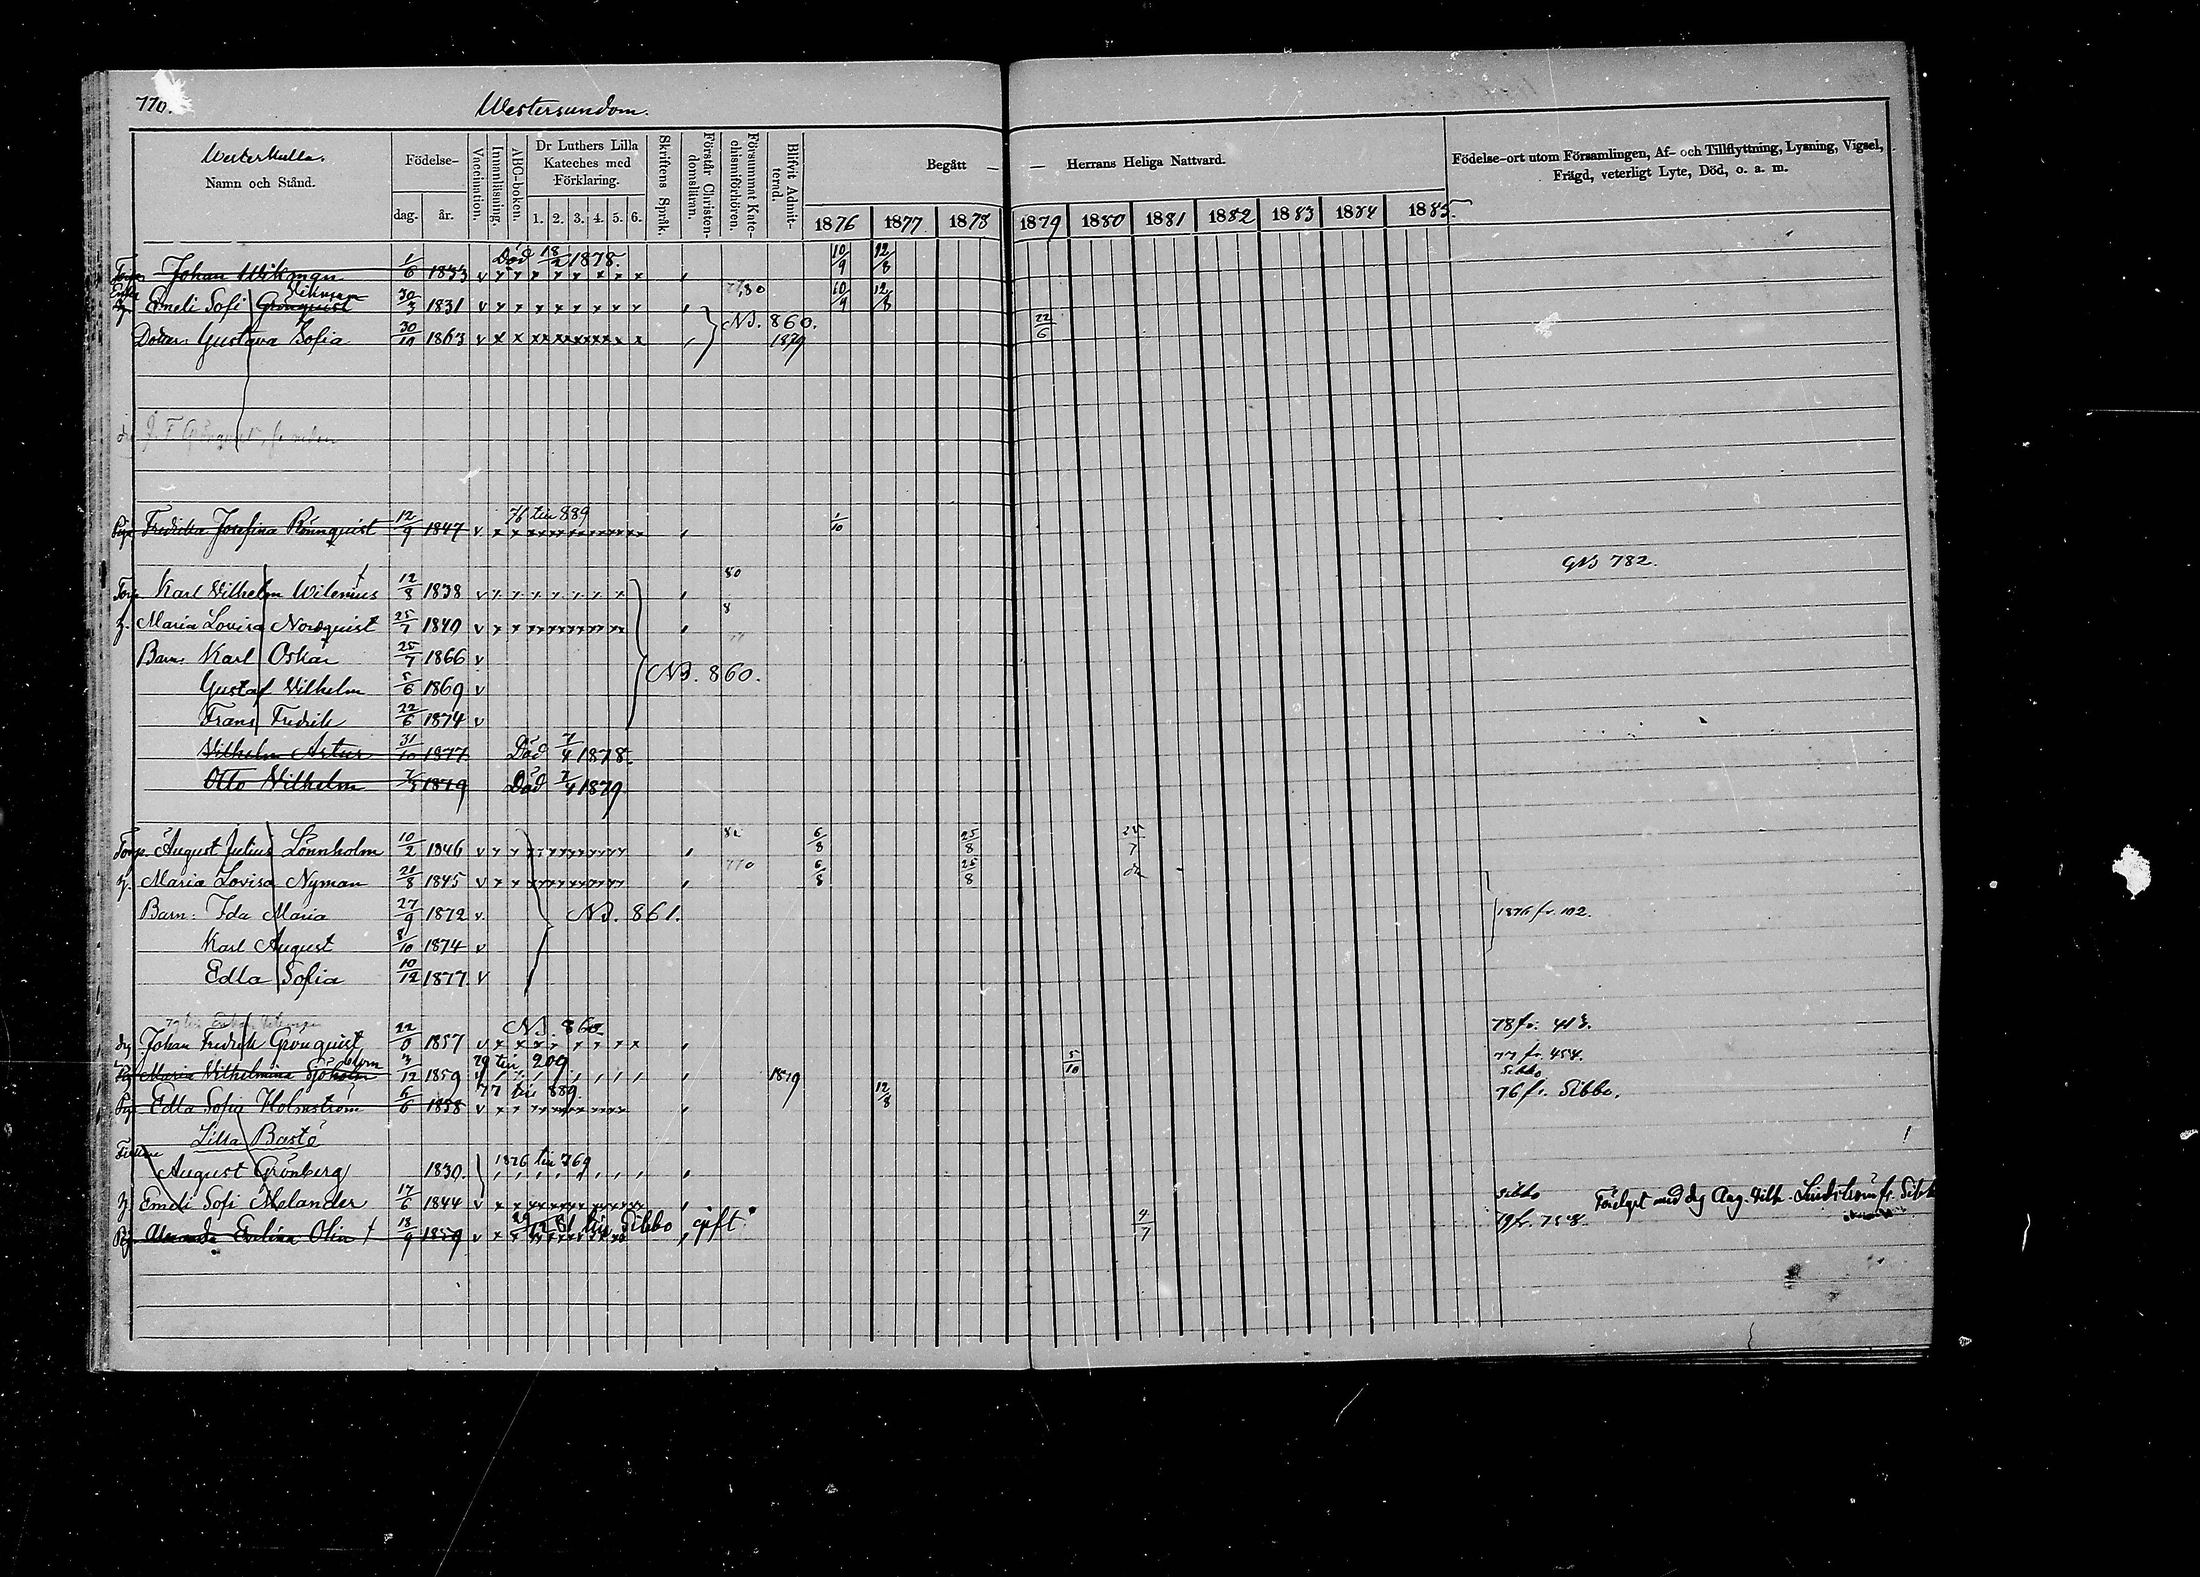 770.
Westersundom.
Westerkulla.
Namn och Stånd.
Födelse-
dag. år.
Vaccination.
Innanläsning.
ABC-boken.
Dr Luthers Lilla Kateches med Förklaring.
1. 2. 3. 4. 5. 6.
Skriftens Språk.
Förstår Christendomsläran.
Försummat Katechismiförhören.
Blifvit Admitterad.
Begått — — Herrans Heliga Nattvard.
1876 1877 1878 1879 1880 1881 1882 1883 1884 1885.
Födelse-ort utom Församlingen, Af- och Tillflyttning, Lysning, Vigsel, Frägd, veterligt Lyte, Död, o. a. m.
Död 18/2 1878.
Torp. Johan Wikman 1/6 1833 v x x x x x x x x 10/9 12/8
Enka Wikman
h. Emeli Sofi Grönquist 30/3 1831 v x x x x x x x x 77,80 10/9 12/8
NB. 860.
Dotter: Gustava Sofia 30/10 1863 v x x xx xx xx xx x x 1879 22/6
J. F Grönquist, se nedan
76 till 889
Pig. Fredrika Josefina Rönnquist 12/9 1847 v x x xx xx xx xx xx xx 1/10
GNB 782.
Torp. Karl Vilhelm Wilenius 12/8 1838 v x x x x x x x 80
h. Maria Lovisa Nordquist 25/7 1840 v x x xx xx xx xx xx 8
Barn: Karl Oskar 25/7 1866 v
NB. 860.
Gustaf Vilhelm 5/6 1869 v
Frans Fredrik 22/6 1874 v
Vilhelm Artur 31/10 1877 Död 7/4 1878.
Otto Vilhelm 1879 Död 7/4 1879
Torp. August Julius Lönnholm 10/2 1846 v 6/8 25/8 25/7
h. Maria Lovisa Nyman 21/8 1845 v 6/8 25/8
Barn: Ida Maria 27/9 1872 v NB. 861. 1876 fr. 102.
Karl August 8/10 1874 v
Edla Sofia 10/12 1877. v
NB. 860
Drg Johan Fredrik Grönquist 1857 v x x x x x x x x 78 fr. 413.
79 till 209
Pig Maria Vilhelmina Sjöholm 3/12 1859 1879 5/10 77 fr. 454. Sibbo
77 till 889.
Pig. Edla Sofia Holmström 6/6 1858 v 12/8 76 fr. Sibbo.
Lilla Bastö
1876 till 769
August Grönberg 1830.
h. Emeli Sofi Melander 17/6 1844 v Sibbo
till Sibbo, gift
Pig. Amanda Evelina Olin 18/9 1859 v 4/7 79 fr. 758. Förelyst med drg Aug. Vilh. Lindström fr. Sibbo